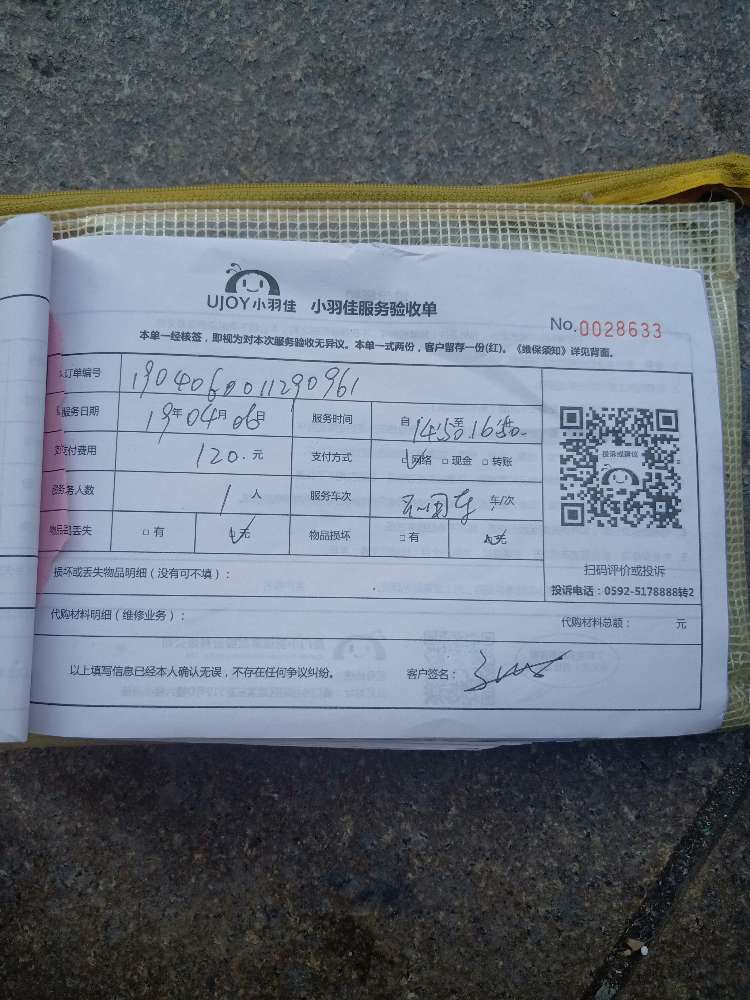 UJOY小羽佳 小羽佳服务验收单
No.0028633
本单一经核签，即视为对本次服务验收无异议。本单一式两份，客户留存一份(红)。《维保须知》详见背面。
订单编号 1904060011290961
服务日期 19年04月06日 服务时间 自1450至1650
付费用 120.元 支付方式 □网络 □现金 □转账
服务人数 1人 服务车次 车/次
物品丢失 □有 □无 物品损坏 □有 □无
投诉或建议
扫码评价或投诉
投诉电话：0592-5178888转2
损坏或丢失物品明细（没有可不填）：
代购材料明细（维修业务）： 代购材料总额： 元
以上填写信息已经本人确认无误，不存在任何争议纠纷。 客户签名：